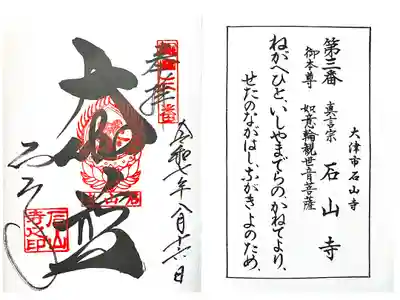 大津市石山寺
第三番 真言宗 石山寺
御本尊 如意輪観世音菩薩
ねがへひと、いしやまでらの、かねてより、
せたのながはし、ながきよのため、
奉拝
大伽藍
令和七年八月十六日
石山寺印